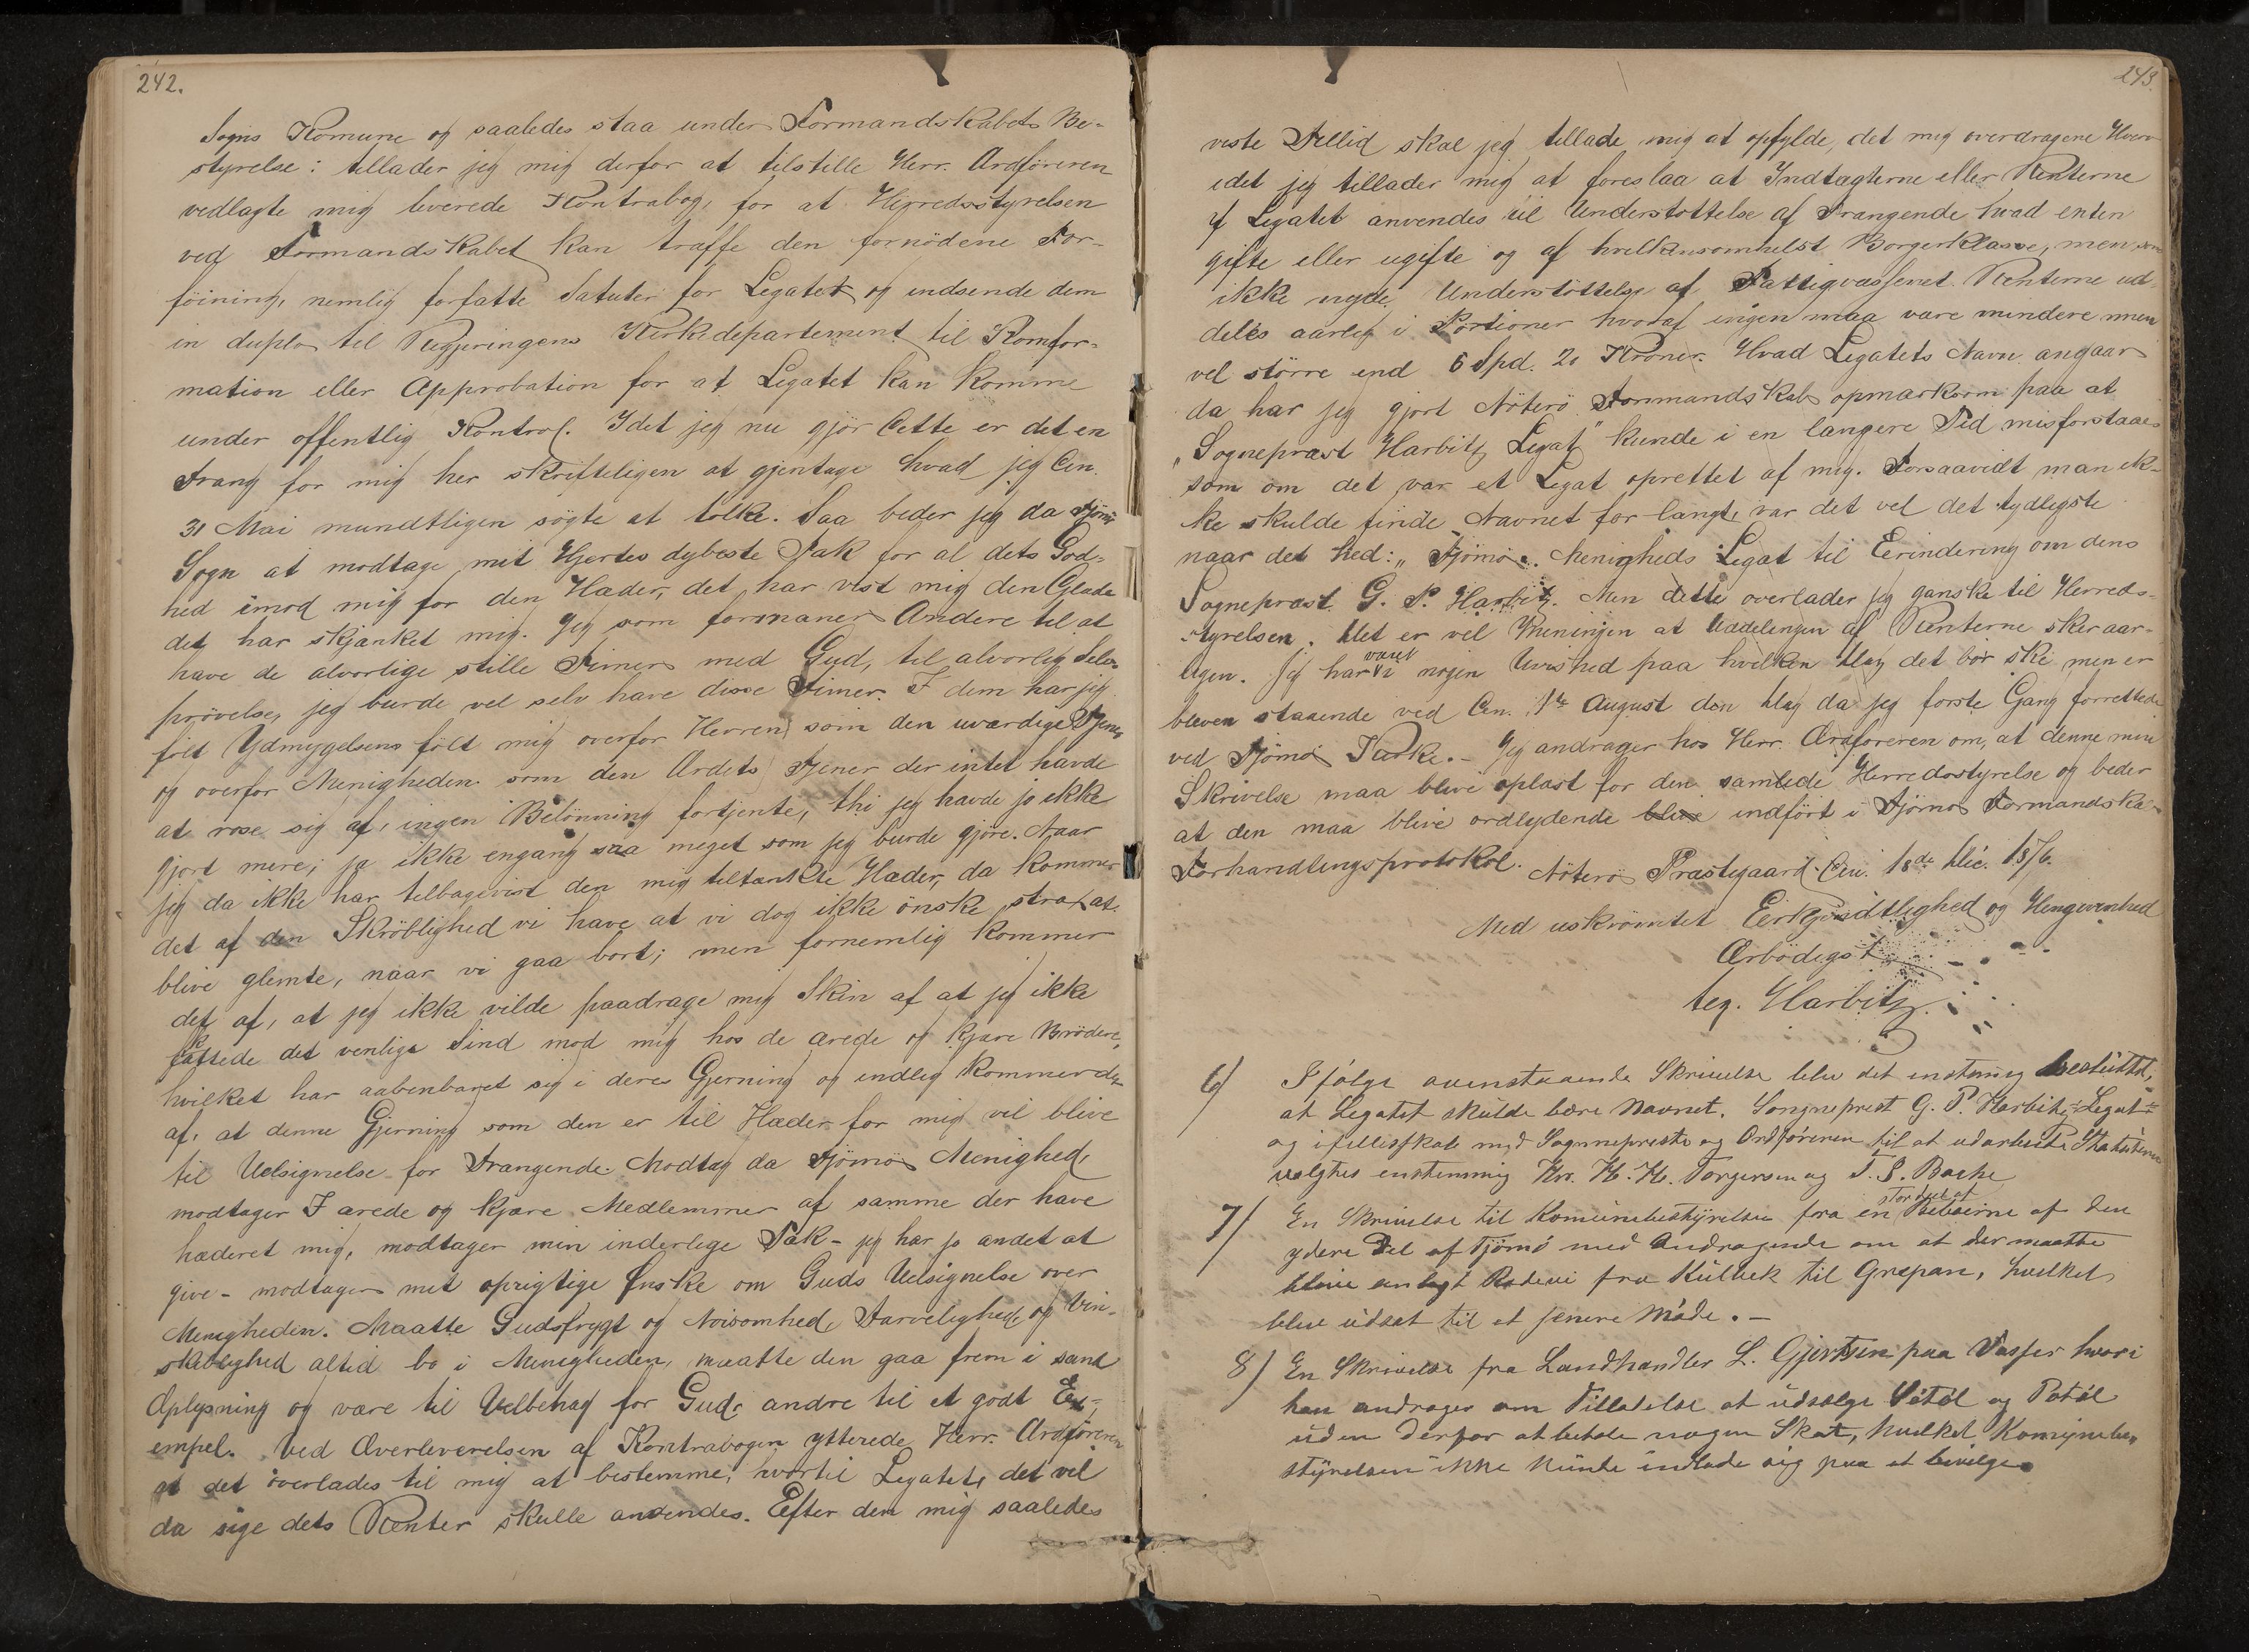 242.
Sogns Komune og saaledes staa under Formandskabets Be-
styrelse: tillader jeg mig derfor at tilstille Herr. Ordføreren
vedlagte mig leverede Kontrabog, for at Herredsstyrelsen
ved Formandskabet kan træffe den fornödene For-
föining, nemlig forfatte Statuter for Legatet og indsende dem
in duplo til Regjeringens Kirkedepartement til Komfor-
mation eller Approbation for at Legatet kan komme
under offentlig Kontrol. Idet jeg nu gjör dette er det en
Trang for mig her skrifteligen at gjentage hvad jeg den
31 Mai mundtligen sögte at tolke. Saa beder jeg da Tjömö
Sogn at modtage mit Hjertes dybeste Tak for al dets God-
hed imod mig for den Hæder, det har vist mig den Glæde
det har skjænket mig. Jeg som formaner Andre til at
have de alvorlige stille Timer med Gud, til alvorlig Selv-
prövelse, jeg burde vel selv have disse Timer. I dem har jeg
fölt Ydmygelsens fölt mig overfor Herren som den uværdige Tjener
og overfor Menigheden som den Ordets Tjener der intet havde
at rose sig af, ingen Belönning fortjente, thi jeg havde jo ikke
gjort mere; ja ikke engang saa meget som jeg burde gjöre. Naar
jeg da ikke har tilbagevist den mig tiltænkte Hæder, da kommer
det af den Skröblighed vi have at vi dog ikke önske strax at
blive glemte, naar vi gaa bort; men fornemlig kommer
det af, at jeg ikke vilde paadrage mig Skin af at jeg ikke
skattede det venlige Sind mod mig hos de ærede og kjære Brödre,
hvilket har aabenbaret sig i deres Gjerning og endlig kommer det
af, at denne Gjerning som den er til Hæder for mig vil blive
til Velsignelse for Trængende. Modtag da Tjömö Menighed,
modtager I ærede og kjære Medlemmer af samme der have
hæderet mig, modtager min inderlige Tak - jeg har jo andet at
give - modtager mit oprigtige Önske om Guds Velsignelse over
Menigheden. Maatte Gudsfrygt og Nöisomhed, Tarvelighed og Vin-
skibelighed altid bo i Menigheden, maatte den gaa frem i sand
Oplysning og være til Velbehag for Gud, andre til et godt Ex-
empel. Ved Overleverelsen af Kontrabogen ytterede Herr. Ordføreren
at det overlades til mig at bestemme, hvortil Legatet, det vil
da sige dets Renter skulle anvendes. Efter den mig saaledes
243.
viste Tillid skal jeg tillade mig at opfylde, det mig overdragene Hverv
idet jeg tillader mig at foreslaa at Indtægterne eller Renterne
af Legatet anvendes til Understöttelse af Trængende hvad enten
gifte eller ugifte og af hvilkensomhelst Borgerklasse, men som
ikke nyde Understöttelse af Fattigvæsenet. Renterne ud-
deles aarlig i Portioner hvoraf ingen maa være mindere men
vel större end 6 Spd. 20 Kroner. Hvad Legatets Navn angaar
da har jeg gjort Nöterö Formandskab opmærksom paa at
"Sognepræst Harbitz Legat" kunde i en længere Tid misforstaaes
som om det var et Legat oprettet af mig. Forsaavidt man ik-
ke skulde finde Navnet for langt, var det vel det tydligste
naar det hed: "Tjömö Menigheds Legat til Erindering om dens
Sognepræst G. P. Harbitz. Men dette overlader jeg ganske til Herreds-
styrelsen. Det er vel Meningen at Uddelingen af Renterne sker aar-
ligen. Jeg har været i nogen Uvished paa hvilken Dag det bör ske, men er
bleven staaende ved den 1ste August den Dag da jeg förste Gang forrettede
ved Tjömö Kirke. - Jeg andrager hos Herr. Ordföreren om, at denne min
Skrivelse maa blive oplæst for den samlede Herredsstyrelse og beder
at den maa blive ordlydende blive indfört i Tjömö Formandskabs
Forhandlingsprotokol. Nöterö Præstegaard den 18de Dec. 1876.
Med uskrömtet Erkjendtlighed og Hengivenhed
Ærbödigst
teg. Harbitz.
6) Ifølge ovenstaaende Skrivelse blev det enstemig besluttet,
at Legatet skulde bære Navnet. Songneprest G. P. Harbitz Legat
og i fellesskab med Sognepresten og Ordføreren til at udarbeide Statuterne
valgtes enstemmig Hr. H. H. Torgersen og T. S. Bache
7) En Skrivelse til Komunebestyrelsen fra en stor deel af Beboerne af den
ydere Del af Tjömö med Andragende om at der maatte
blive anlagt Rodevei fra Kulbek til Grepan, hvilket
blev udsat til et senere Möde. -
8) En Skrivelse fra Landhandler L. Gjertsen paa Vasser hvori
han andrager om Tilladelse at udsælge Sötöl og Potöl
uden derfor at betale nogen Skat, hvilket Komunebe-
styrelsen ikke kunde indlade sig paa at bevilge